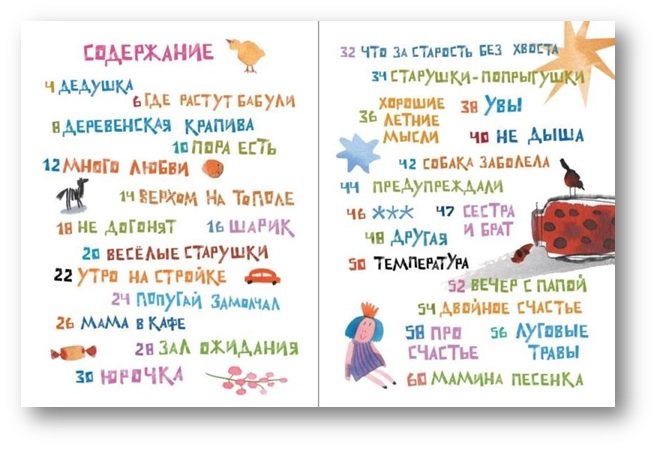 СОДЕРЖАНИЕ
4 ДЕДУШКА
6 ГДЕ РАСТУТ БАБУЛИ
8 ДЕРЕВЕНСКАЯ КРАПИВА
10 ПОРА ЕСТЬ
12 МНОГО ЛЮБВИ
14 ВЕРХОМ НА ТОПОЛЕ
18 НЕ ДОГОНЯТ
16 ШАРИК
20 ВЕСЁЛЫЕ СТАРУШКИ
22 УТРО НА СТРОЙКЕ
24 ПОПУГАЙ ЗАМОЛЧАЛ
26 МАМА В КАФЕ
28 ЗАЛ ОЖИДАНИЯ
30 ЮРОЧКА
32 ЧТО ЗА СТАРОСТЬ БЕЗ ХВОСТА
34 СТАРУШКИ-ПОПРЫГУШКИ
36 ХОРОШИЕ
ЛЕТНИЕ
МЫСЛИ
38 УВЫ
40 НЕ ДЫША
42 СОБАКА ЗАБОЛЕЛА
44 ПРЕДУПРЕЖДАЛИ
46 ***
47 СЕСТРА
И БРАТ
48 ДРУГАЯ
50 ТЕМПЕРАТУРА
52 ВЕЧЕР С ПАПОЙ
54 ДВОЙНОЕ СЧАСТЬЕ
58 ПРО
СЧАСТЬЕ
56 ЛУГОВЫЕ
ТРАВЫ
60 МАМИНА ПЕСЕНКА